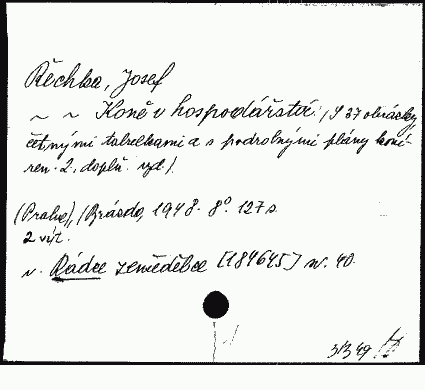 Řechka, Josef
~ ~ Koně v hospodářství. /S 37 obrázky,
četnými tabulkami a s podrobnými plány koní-
ren. 2. doplň. vyd./.
(Praha), /Brázda, 1948. 8° 127 s.
2 výt.
v. Rádce zemědělce [184645] sv. 40.
3/3 49